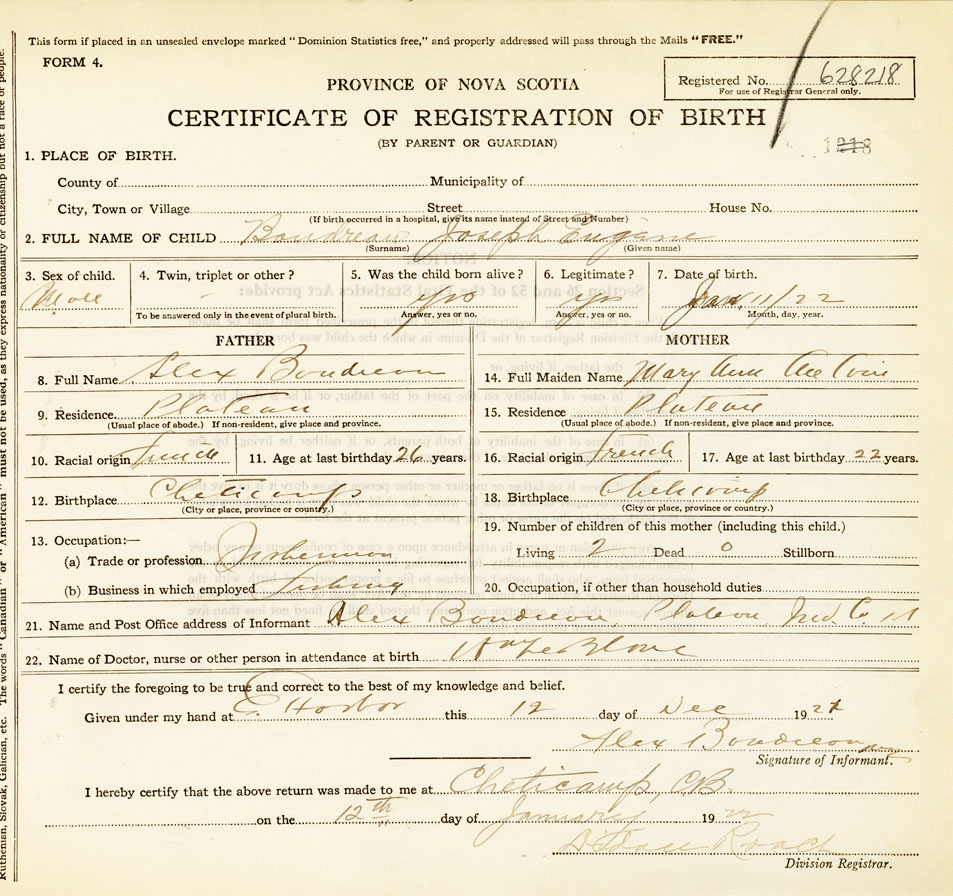 This form if placed in an unsealed envelope marked “Dominion Statistics free,” and properly addressed will pass through the Mails “FREE.”
FORM 4.
Registered No. 628218
For use of Registrar General only.
PROVINCE OF NOVA SCOTIA
CERTIFICATE OF REGISTRATION OF BIRTH
(BY PARENT OR GUARDIAN)
1218
1. PLACE OF BIRTH.
County of Municipality of
City, Town or Village Street House No.
(If birth occurred in a hospital, give its name instead of Street and Number)
2. FULL NAME OF CHILD Boudreau Joseph Eugene
(Surname) (Given name)
3. Sex of child. 4. Twin, triplet or other? 5. Was the child born alive? 6. Legitimate? 7. Date of birth.
Male yes yes Jan 11/22
To be answered only in the event of plural birth. Answer, yes or no. Answer, yes or no. Month, day, year.
FATHER MOTHER
8. Full Name Alex Boudreau 14. Full Maiden Name Mary Ann
9. Residence Plateau 15. Residence Plateau
(Usual place of abode.) If non-resident, give place and province. (Usual place of abode.) If non-resident, give place and province.
10. Racial origin french 11. Age at last birthday 26 years. 16. Racial origin french 17. Age at last birthday 22 years.
12. Birthplace Cheticamp 18. Birthplace Cheticamp
(City or place, province or country.) (City or place, province or country.)
13. Occupation:— 19. Number of children of this mother (including this child.)
(a) Trade or profession Fisherman Living 2 Dead 0 Stillborn
(b) Business in which employed fishing 20. Occupation, if other than household duties
21. Name and Post Office address of Informant Alex Boudreau, Plateau, Inv. C.
22. Name of Doctor, nurse or other person in attendance at birth
I certify the foregoing to be true and correct to the best of my knowledge and belief.
Given under my hand at E. Harbor this 12 day of Dec 19
Alex Boudreau
Signature of Informant.
I hereby certify that the above return was made to me at Cheticamp, C.B.
on the 12th day of January 1922
Roach
Division Registrar.
Ruthenian, Slovak, Galician, etc. The words “Canadian” or “American” must not be used, as they express nationality or citizenship but not a race or people.